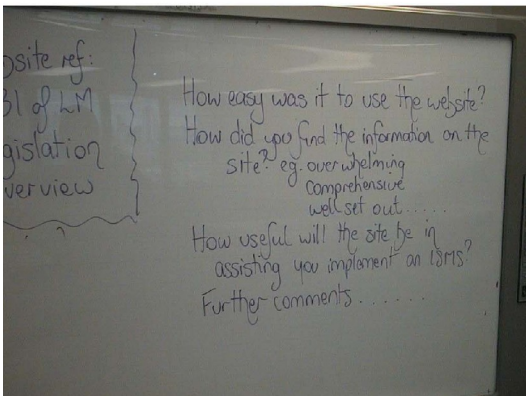 site ref:
of LM
gislation
verview
How easy was it to use the website?
How did you find the information on the
site? eg. overwhelming
comprehensive
well set out.....
How useful will the site be in
assisting you implement an ISMS?
Further comments.......